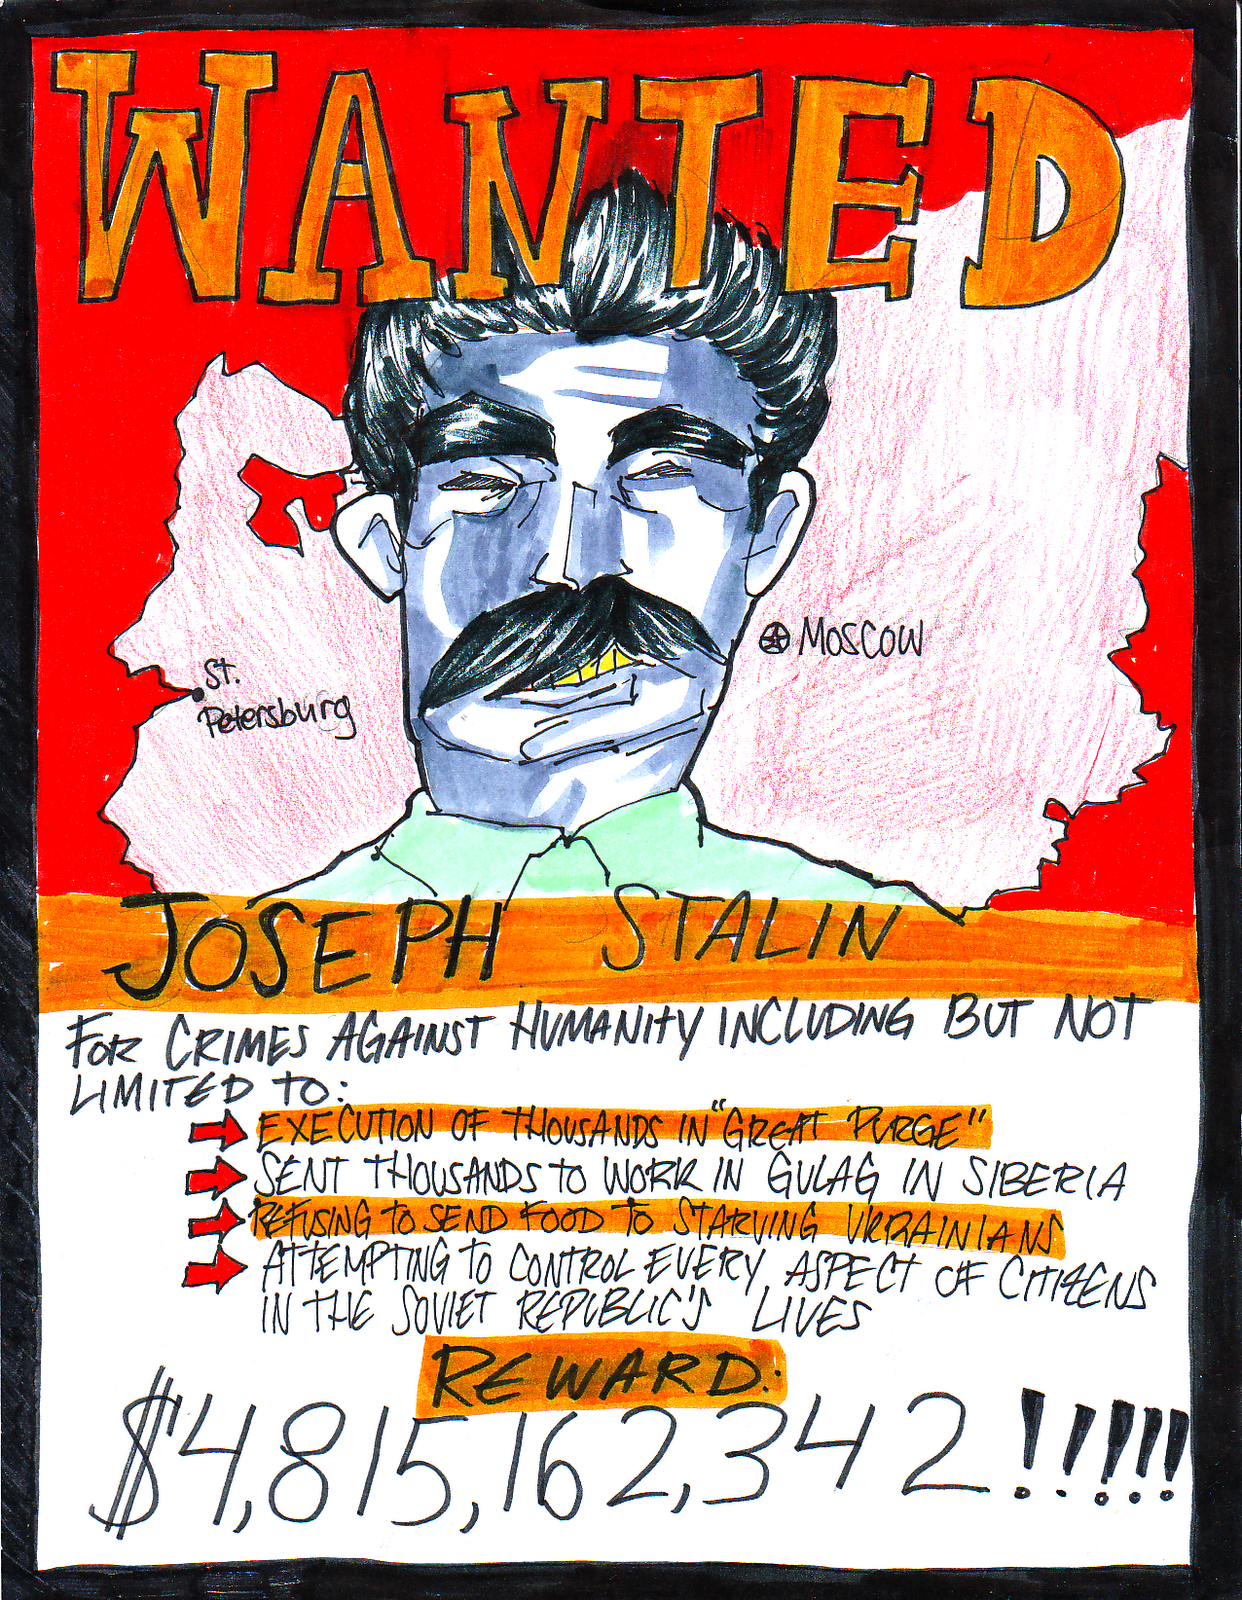 WANTED
St.
Petersburg
MOSCOW
JOSEPH STALIN
FOR CRIMES AGAINST HUMANITY INCLUDING BUT NOT
LIMITED TO:
EXECUTION OF THOUSANDS IN "GREAT PURGE"
SENT THOUSANDS TO WORK IN GULAG IN SIBERIA
REFUSING TO SEND FOOD TO STARVING UKRAINIANS
ATTEMPTING TO CONTROL EVERY ASPECT OF CITIZENS
IN THE SOVIET REPUBLIC'S LIVES
REWARD:
$4,815,162,342!!!!!